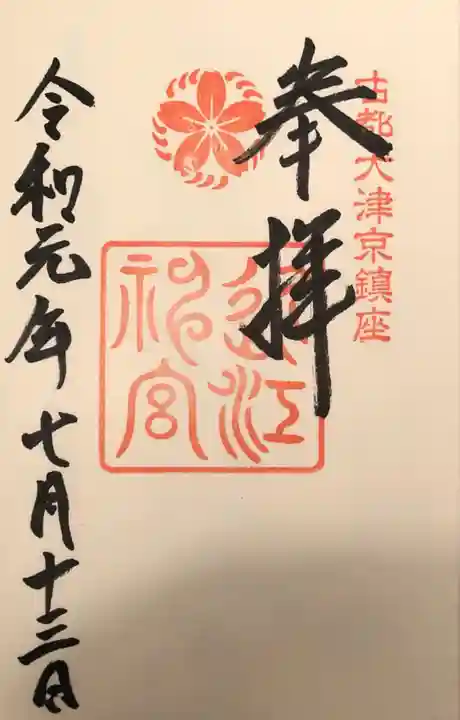 古都大津京鎮座
奉拝
近江
神宮
令和元年七月十三日